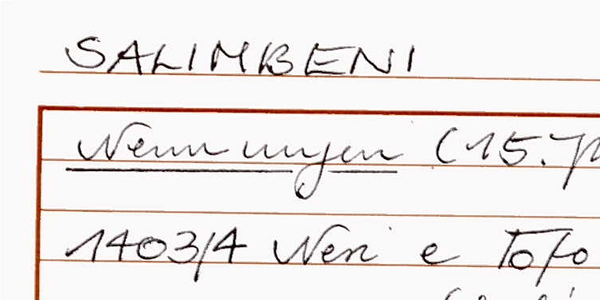 SALIMBENI
Nennungen (15. J
1403/4 Neri e Tofo